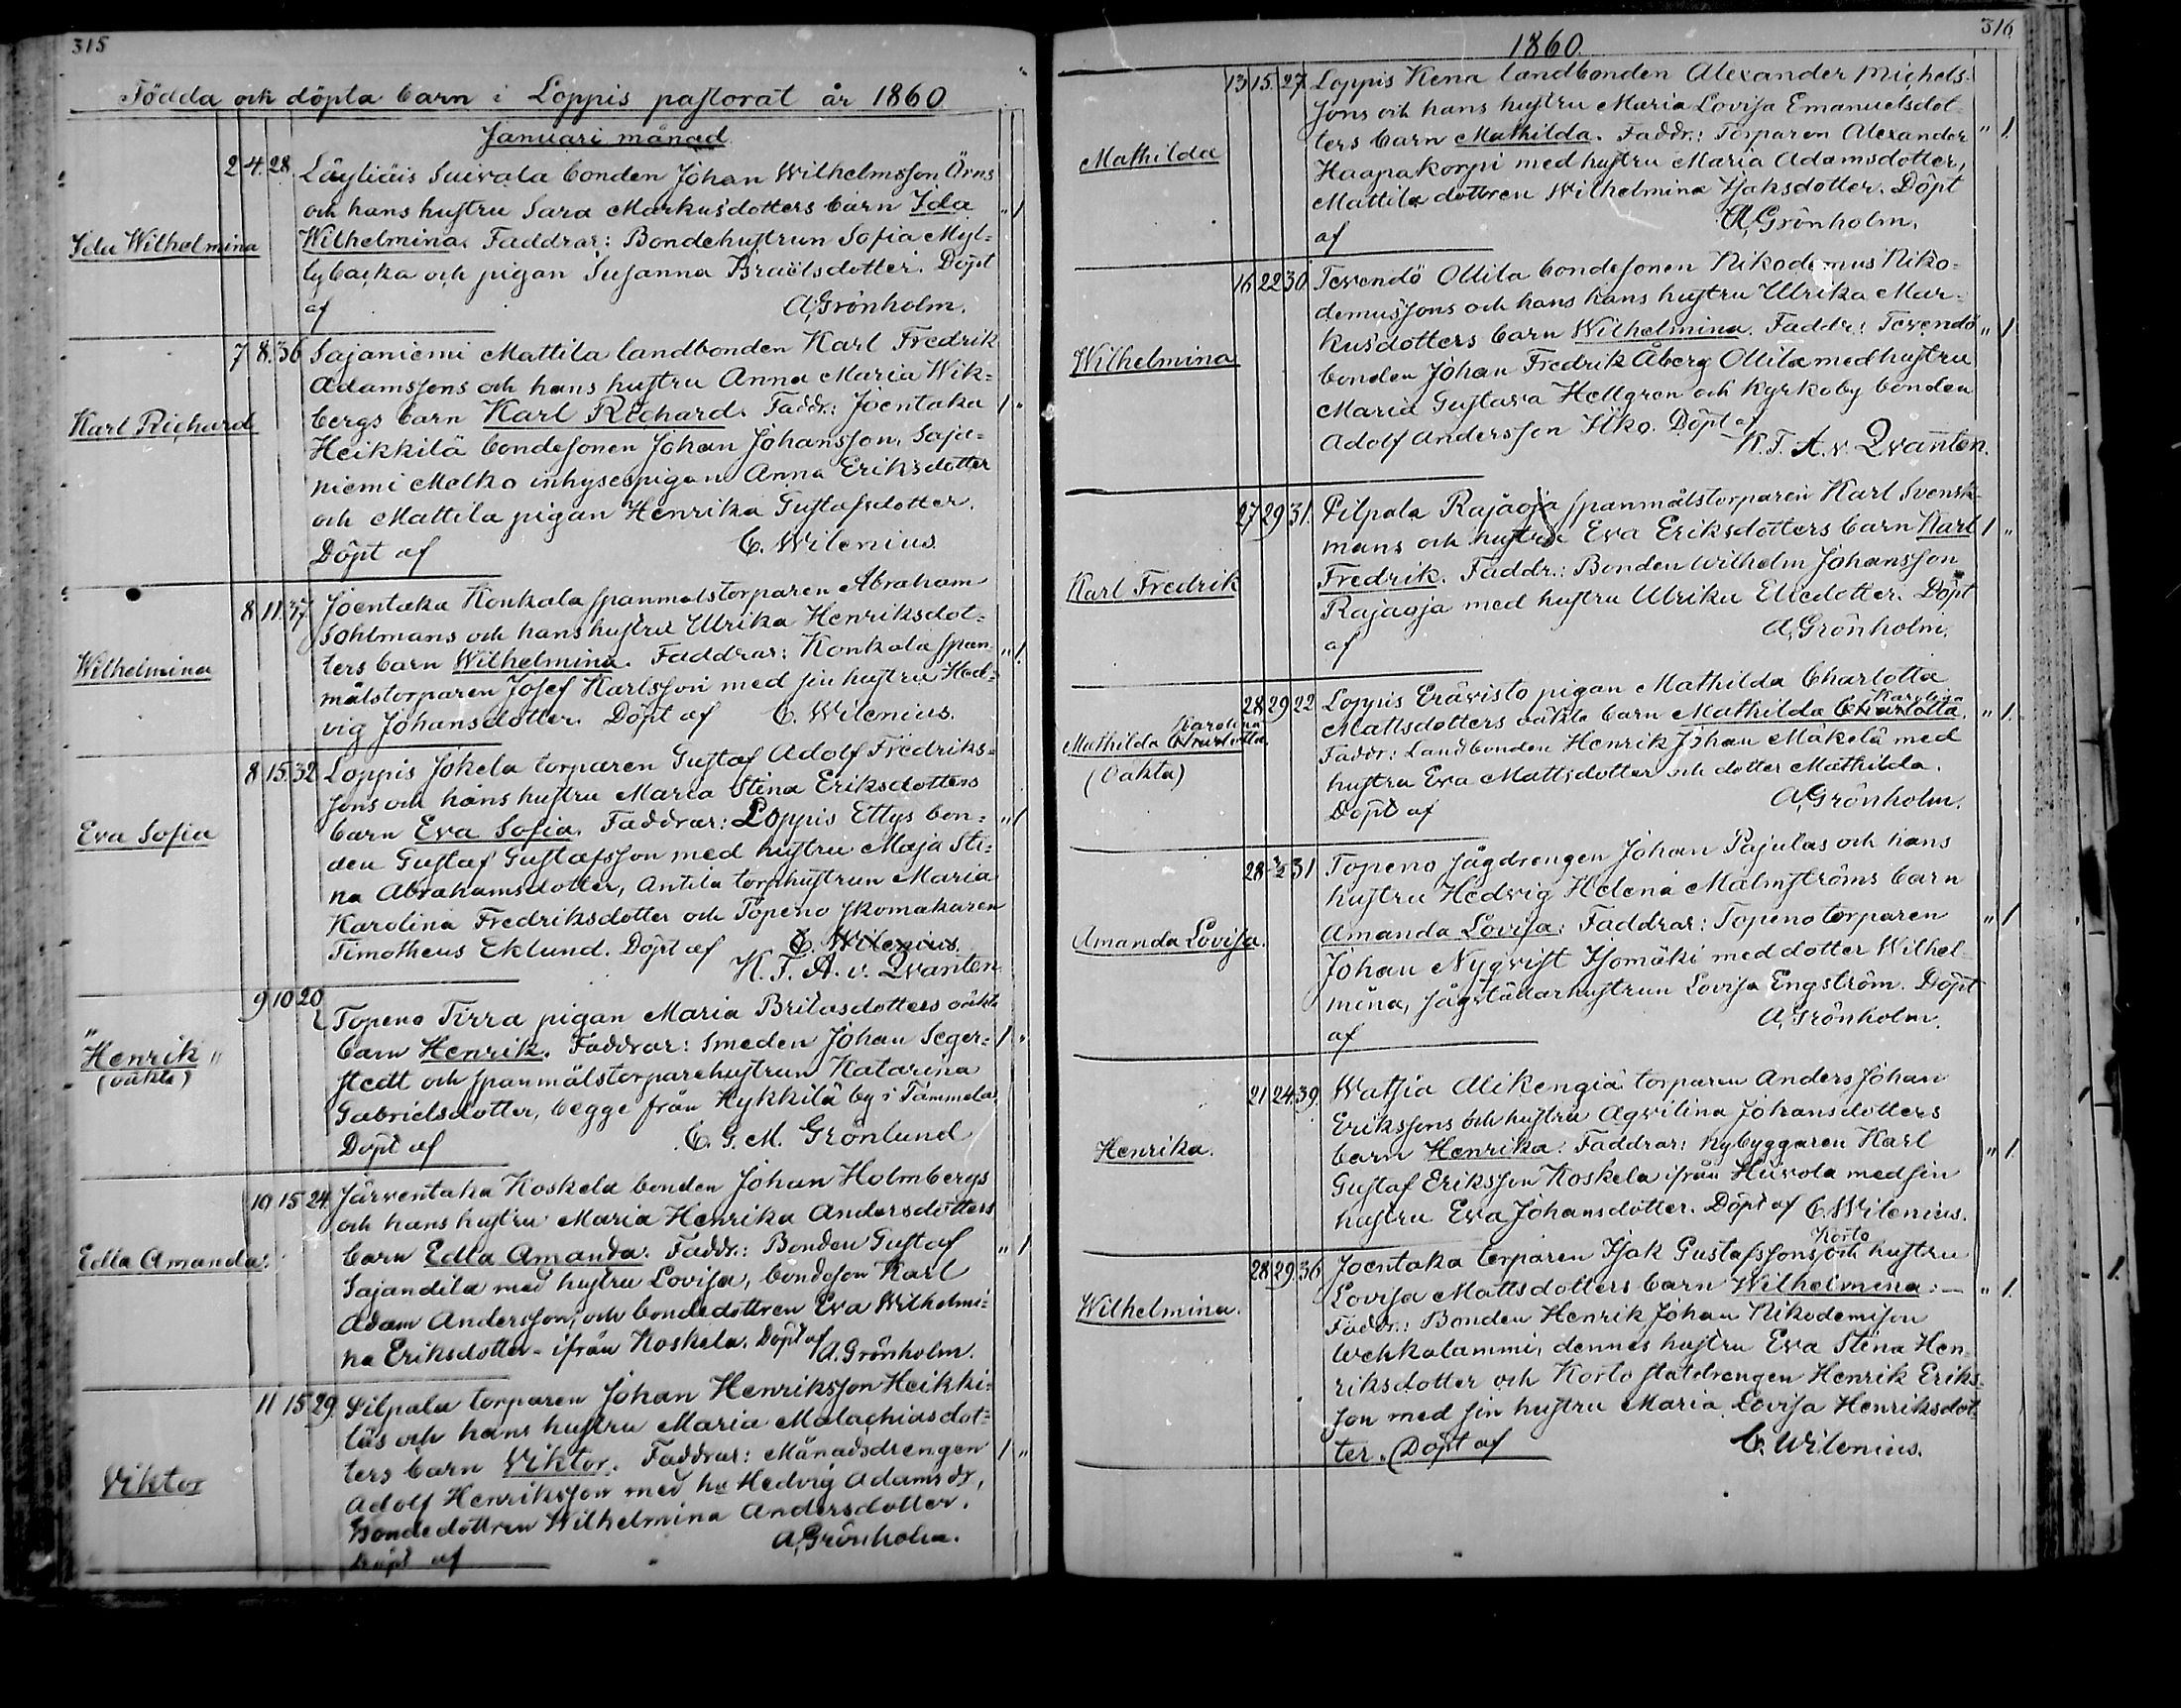 315
Födda och döpta barn i Loppis pastorat år 1860
Januari månad
2 4. 28. Läyliäis Suivala bonden Johan Wilhelmsson Örns
och hans hustru Sara Markusdotters barn Ida " 1
Ida Wilhelmina
Wilhelmina. Faddrar: Bondehustrun Sofia Myl=
lybacka och pigan Susanna Israëlsdotter. Döpt
af A. Grönholm.
7 8. 36 Sajaniemi Mattila landbonden Karl Fredrik
Adamssons och hans hustru Anna Maria Wik=
Karl Richard
bergs barn Karl Richard. Faddr.: Joentaka 1 "
Heikkilä bondesonen Johan Johansson, Saja=
niemi Melko inhysespigan Anna Eriksdotter
och Mattila pigan Henrika Gustafsdotter.
Döpt af C. Wilenius.
8 11. 37. Joentaka Konkala spanmalstorparen Abraham
Sohlmans och hans hustru Ulrika Henriksdot=
Wilhelmina
ters barn Wilhelmina. Faddrar: Konkala span " 1.
målstorparen Josef Karlsson med sin hustru Hed=
vig Johansdotter. Döpt af C. Wilenius.
8 15. 32 Loppis Jokela torparen Gustaf Adolf Fredriks=
sons och hans hustru Maria Stina Eriksdotters
Eva Sofia
barn Eva Sofia. Faddrar: Loppis Ettys bon= " 1
den Gustaf Gustafsson med hustru Maja Sti=
na Abrahamsdotter, Antila torphustrun Maria
Karolina Fredriksdotter och Topeno skomakaren
Timotheus Eklund. Döpt af C. Wilenius.
K. T. A. v. Qvanten
9 10 20 Topeno Tirra pigan Maria Britasdotters oäkta
Henrik "
(oäkta)
barn Henrik. Faddrar: Smeden Johan Seger= 1 "
stedt och spanmålstorparehustrun Katarina
Gabrielsdotter, begge från Kykkilä by i Tammela
Döpt af C. G. M. Grönlund
10 15 24. Järventaka Koskela bonden Johan Holmbergs
och hans hustru Maria Henrika Andersdotters
Edla Amanda.
barn Edla Amanda. Faddr.: Bonden Gustaf " 1
Sajandila med hustru Lovisa, bondeson Karl
Adam Andersson, och bondedottren Eva Wilhelmi=
na Eriksdotter - ifrån Koskela. Döpt af A. Grönholm.
11 15 29. Pilpala torparen Johan Henriksson Heikki=
läs och hans hustru Maria Malachiasdot=
Viktor
ters barn Viktor. Faddrar: Månadsdrengen 1 "
Adolf Henriksson med hu Hedvig Adamsdr,
Bondedottren Wilhelmina Andersdotter.
Döpt af A. Grönholm.
316
1860.
13 15. 27. Loppis Kena landbonden Alexander Michels=
sons och hans hustru Maria Lovisa Emanuelsdot=
Mathilda
ters barn Mathilda. Faddr.: Torparen Alexander " 1.
Haapakorpi med hustru Maria Adamsdotter,
Mattila dottren Wilhelmina Isaksdotter. Döpt
af A. Grönholm.
16 22 30. Tevendö Ollila bondesonen Nikodemus Niko=
demussons och hans hans hustru Ulrika Mar=
Wilhelmina
kusdotters barn Wilhelmina. Faddr: Tevendö " 1
bonden Johan Fredrik Åberg Ollila med hustru
Maria Gustava Hellgren och Kyrkoby bonden
Adolf Andersson Ilko. Döpt af K. T. A. v. Qvanten.
27 29 31. Pilpala Rajaoja spanmålstorparen Karl Svensk=
mans och hustru Eva Eriksdotters barn Karl 1 "
Karl Fredrik
Fredrik. Faddr.: Bonden Wilhelm Johansson
Rajaoja med hustru Ulrika Eliedotter. Döpt
af A. Grönholm.
28 29 22 Loppis Erävisto pigan Mathilda Charlotta
Karolina
Mathilda Charlotta.
(Oäkta)
Karolina
Mattsdotters oäkta barn Mathilda Charlotta. " 1.
Faddr: Landbonden Henrik Johan Mäkelä med
hustru Eva Mattsdotter och dotter Mathilda.
Döpt af A. Grönholm.
28 3/2 31 Topeno sågdrengen Johan Pajulas och hans
hustru Hedvig Helena Malmströms barn
Amanda Lovisa.
Amanda Lovisa: Faddrar: Topeno torparen " 1
Johan Nyqvist Isomäki med dotter Wilhel=
mina, sågställarhustrun Lovisa Engström. Döpt
af A. Grönholm.
21 24. 39. Watsia Alikengiä torparen Anders Johan
Erikssons och hustru Agvilina Johansdotters
Henrika.
barn Henrika. Faddrar: Nybyggaren Karl " 1.
Gustaf Eriksson Koskela ifrån Hirvola med sin
hustru Eva Johansdotter. Döpt af C. Wilenius.
Korto
28 29. 36 Joentaka torparen Isak Gustafssons, och hustru
Wilhelmina.
Lovisa Mattsdotters barn Wilhelmina:— " 1.
Faddr.: Bonden Henrik Johan Nikodemisson
Wehkalammi, dennes hustru Eva Stina Hen=
riksdotter och Korto statdrengen Henrik Eriks=
son med sin hustru Maria Lovisa Henriksdot=
ter. Döpt af C. Wilenius.